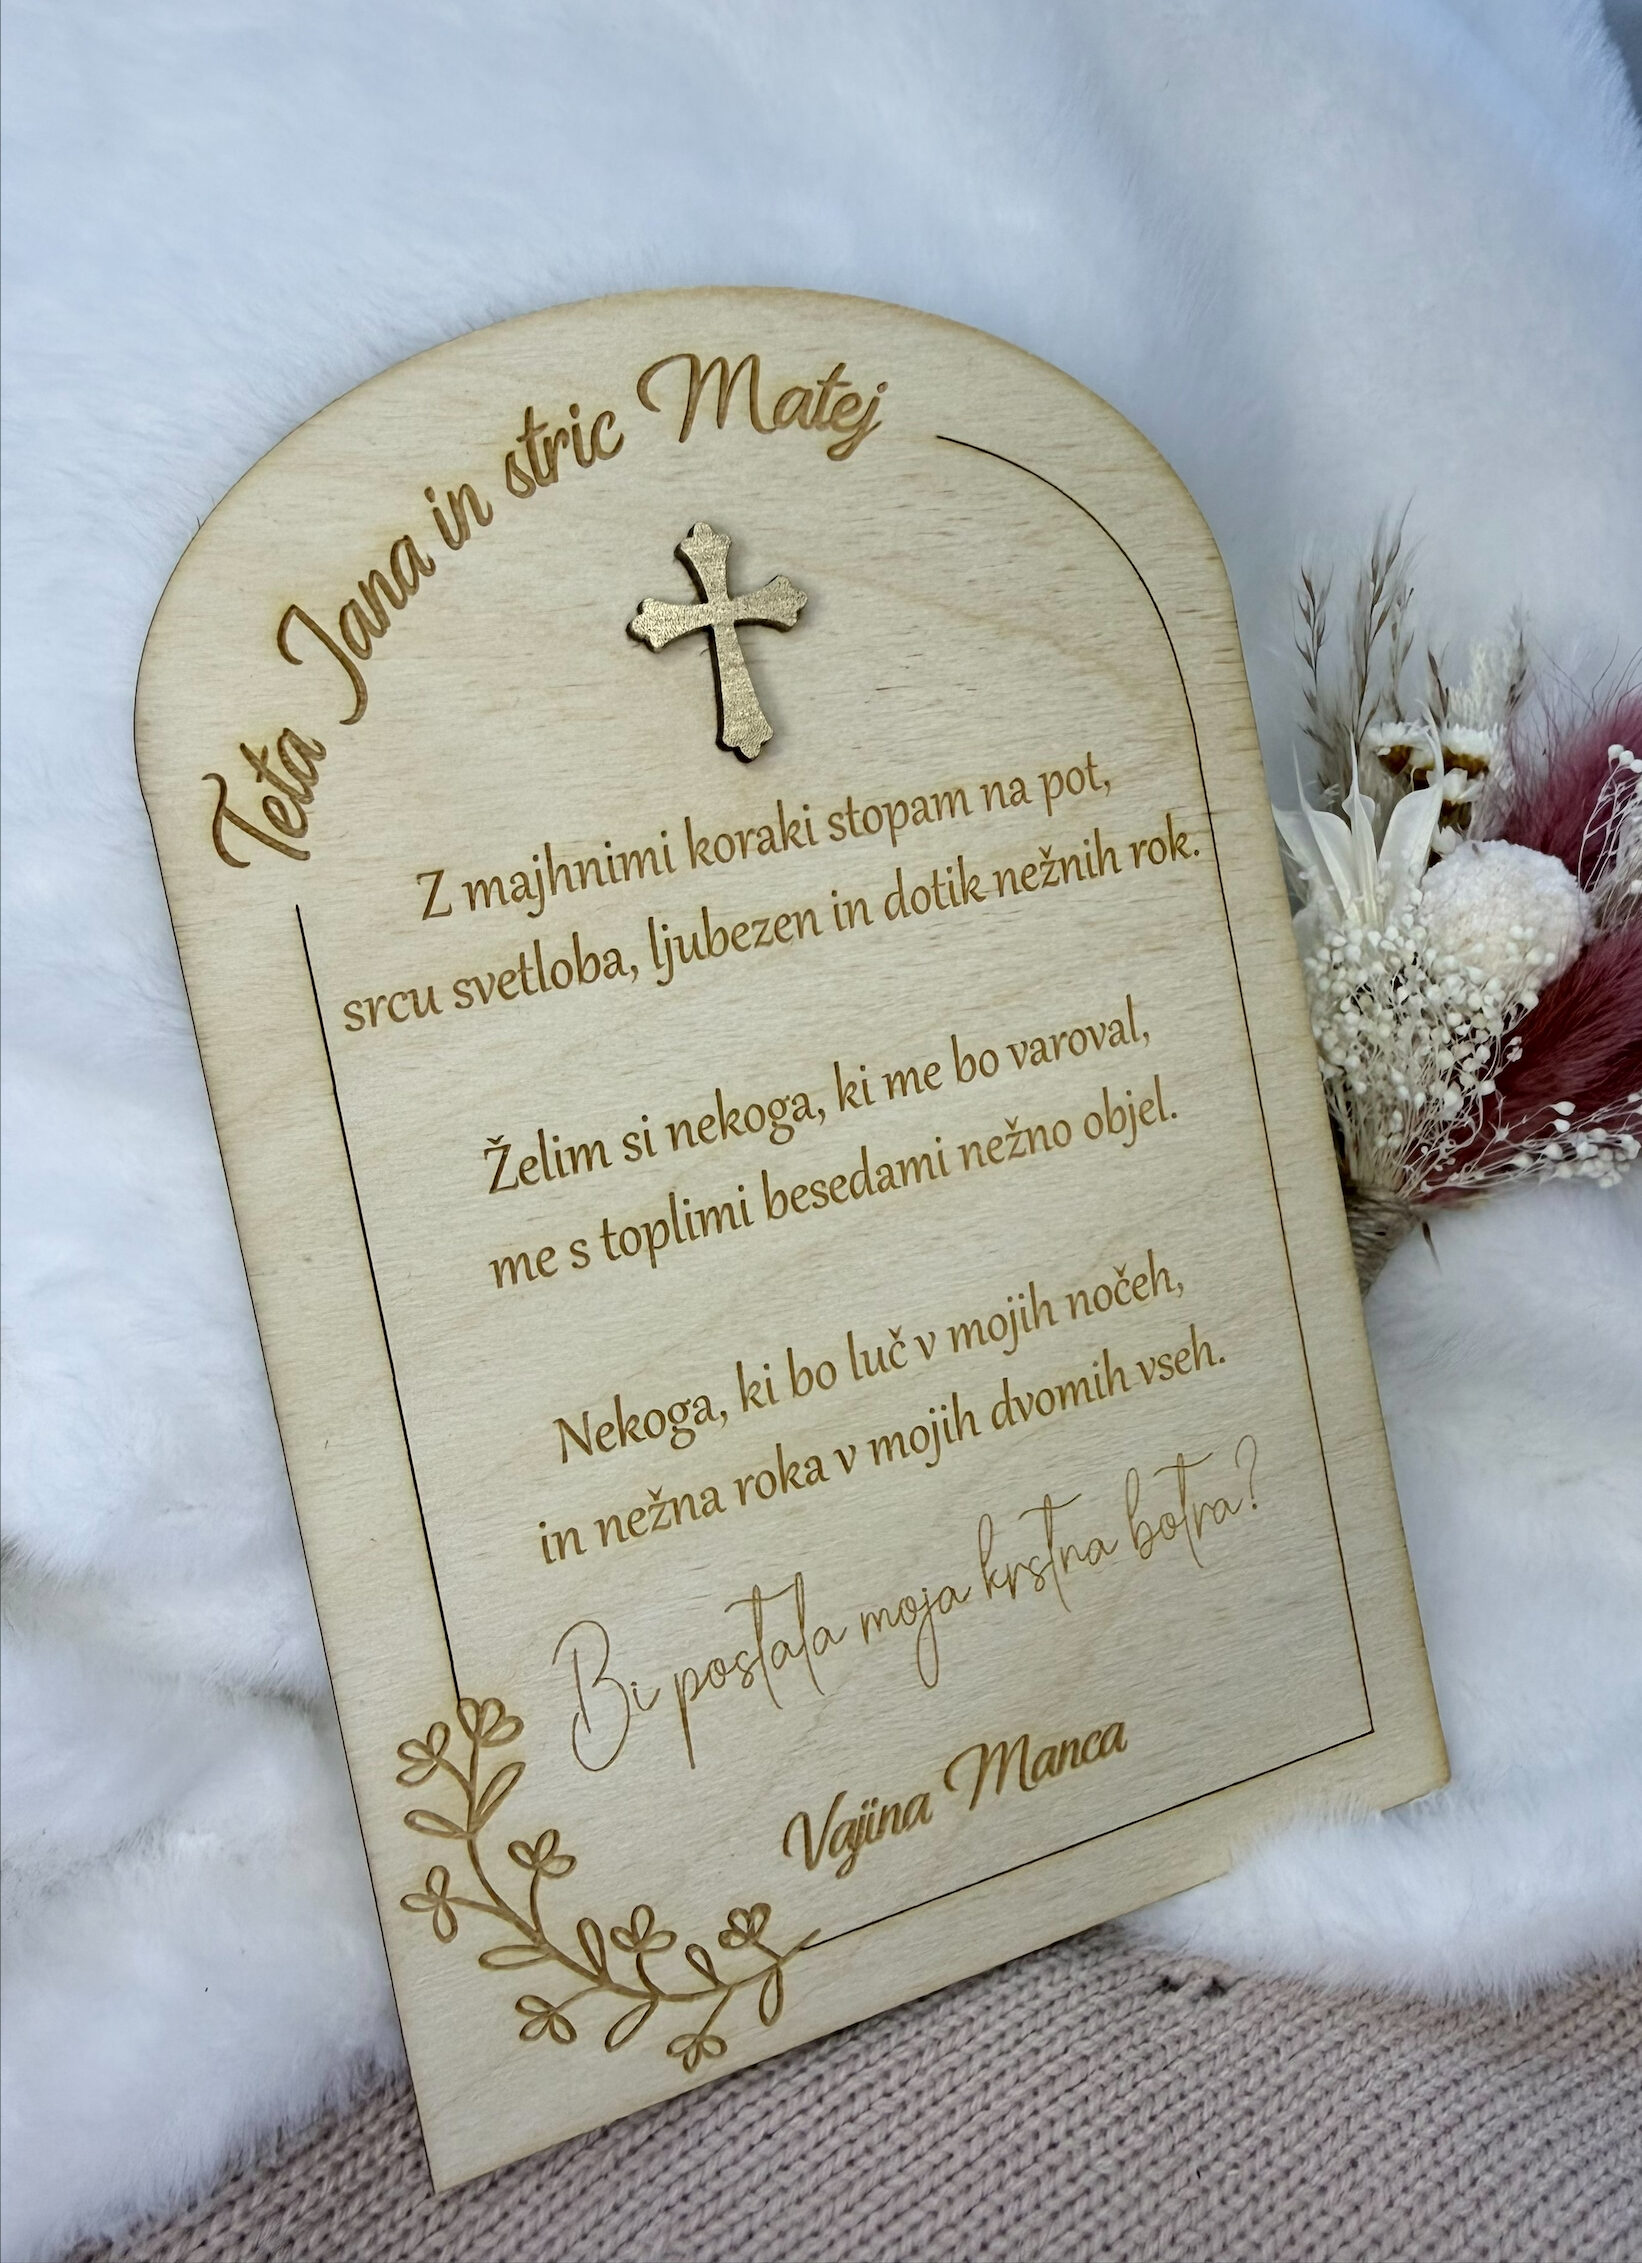 Teta Jana in stric Matej
Z majhnimi koraki stopam na pot,
srcu svetloba, ljubezen in dotik nežnih rok.
Želim si nekoga, ki me bo varoval,
me s toplimi besedami nežno objel.
Nekoga, ki bo luč v mojih nočeh,
in nežna roka v mojih dvomih vseh.
Bi postala moja krstna botra?
Vajina Manca